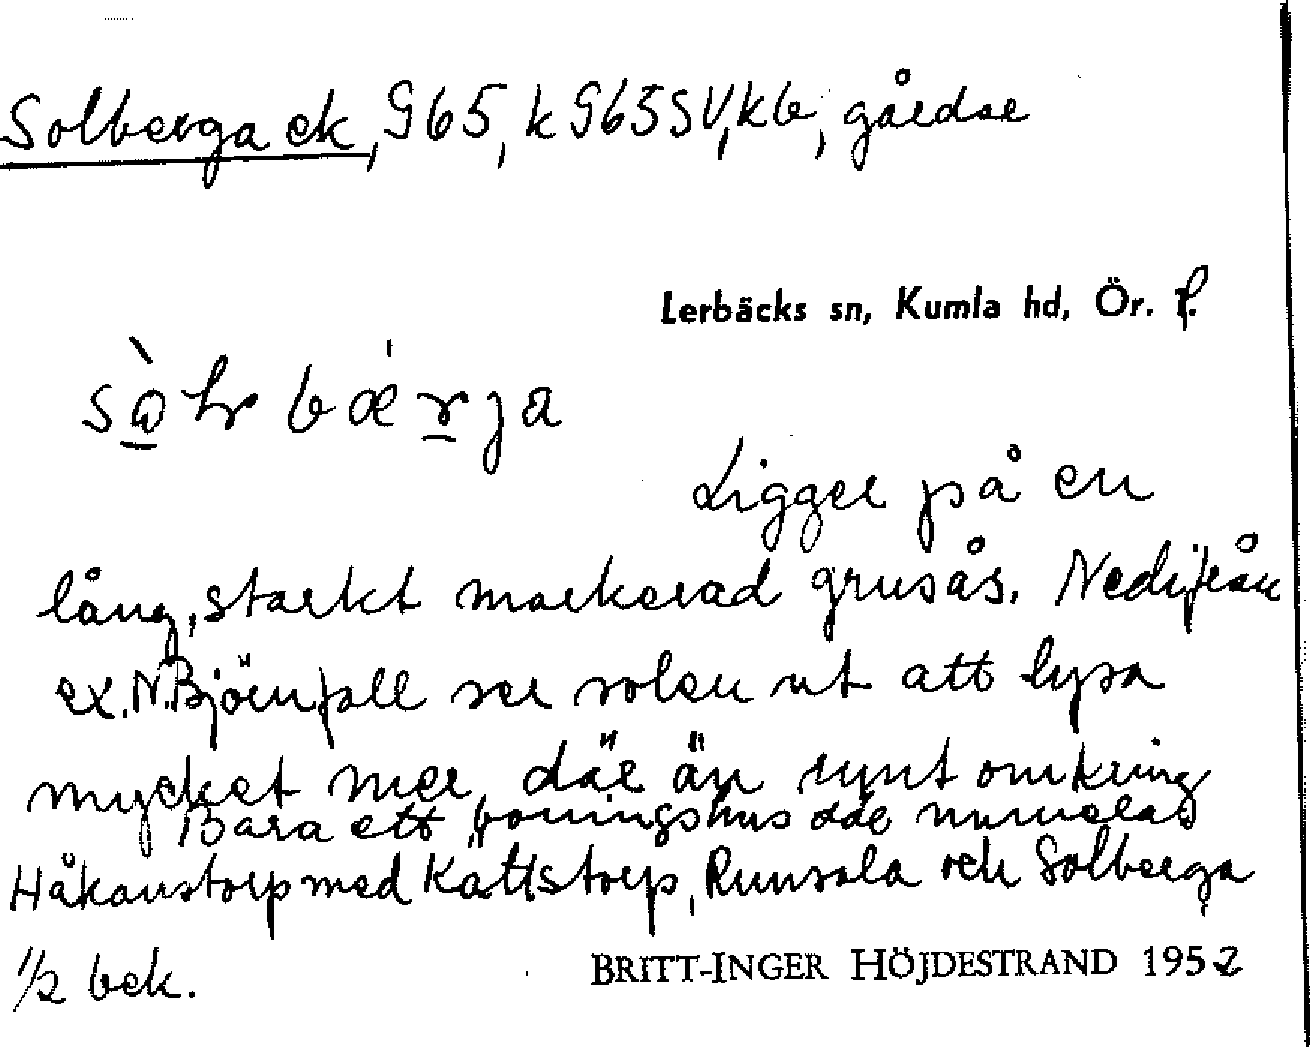 Solberga ek, G65, k G65SV, kb, gårdar
Lerbäcks sn, Kumla hd, Ör. l.
bærja
Ligger på en
lång, starkt markerad grusås. Nedifrån
ex. N. Björnfall ser solen ut att lysa
mycket mer där än runt omkring
Bara ett boningshus där numera
Håkanstorp med Kättstorp, Runsala och Solberga
1/2 bek.
BRITT-INGER HÖJDESTRAND 1952